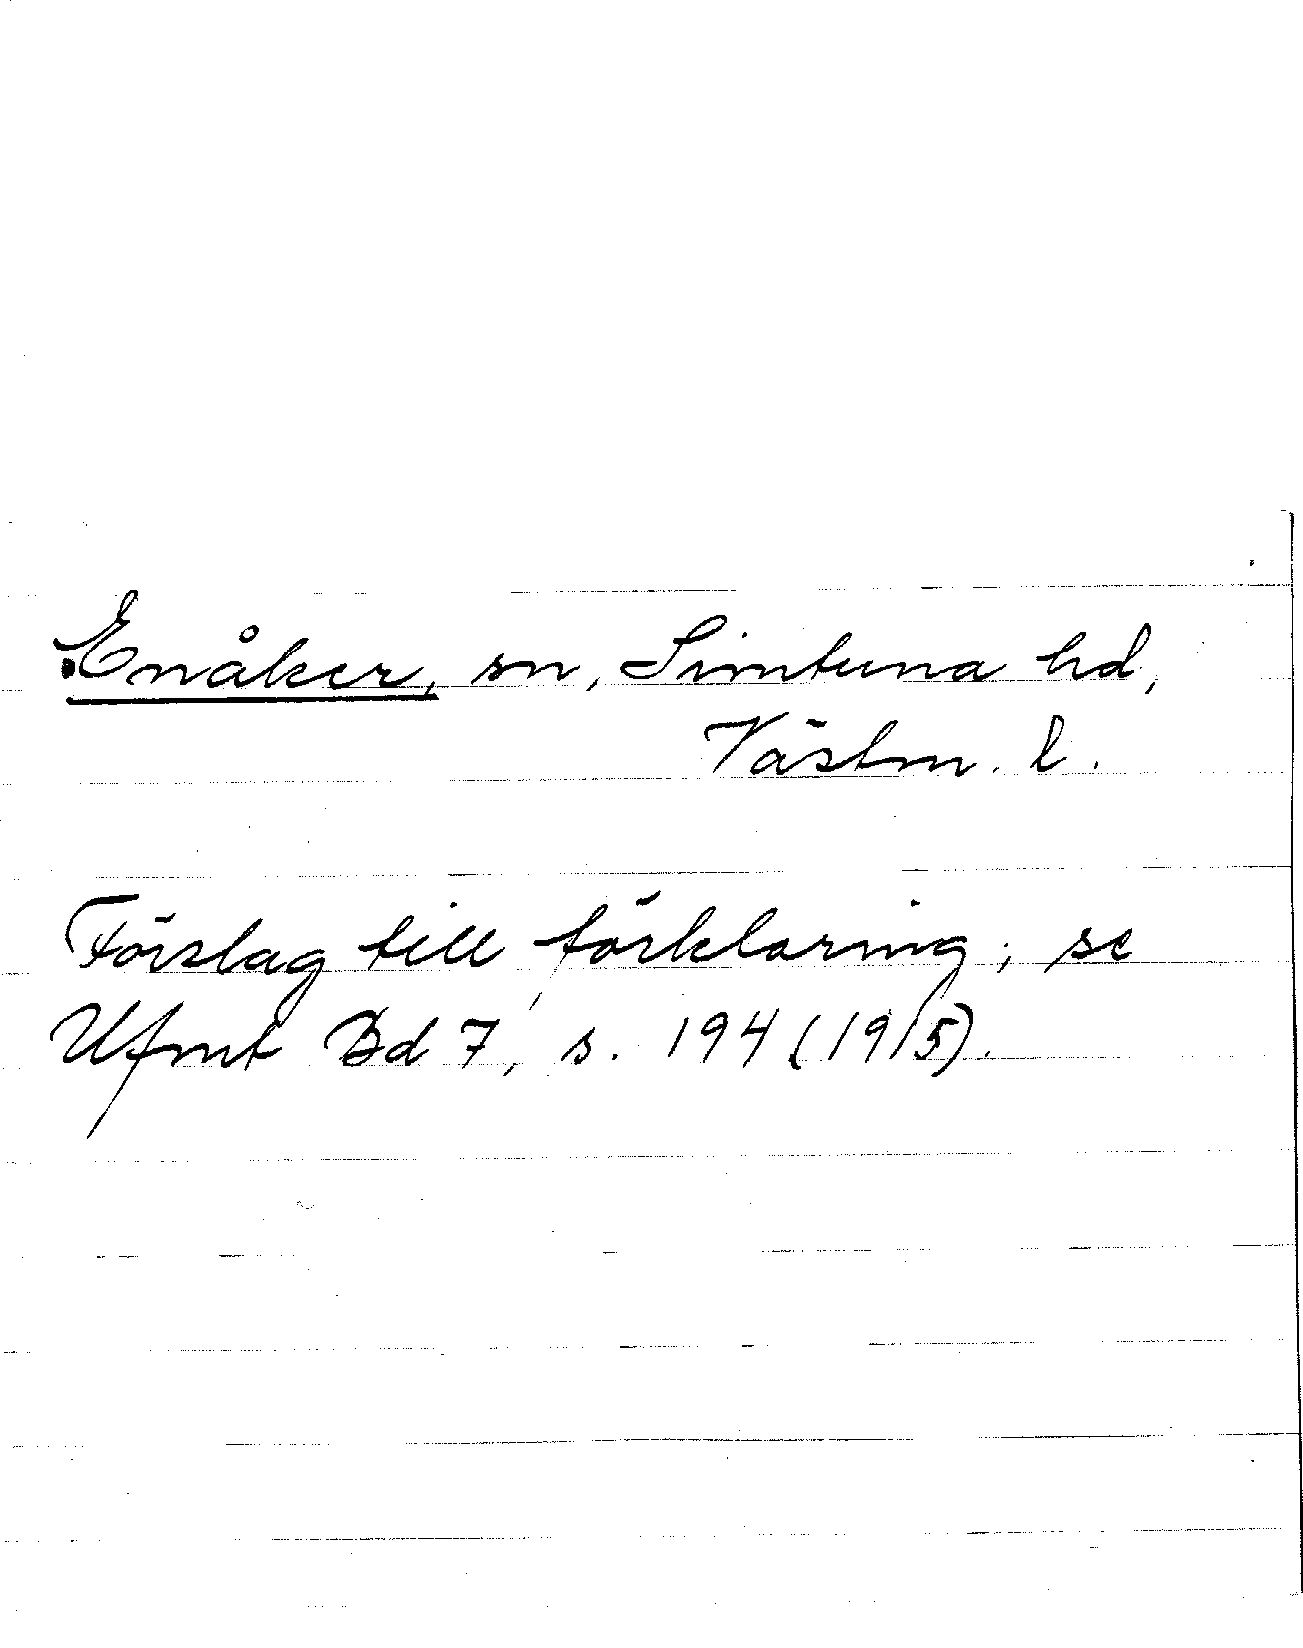 Enåker, sn, Simtuna hd,
Västm. l.
Förslag till förklaring, se
Ufmt Bd 7, s. 194 (1915).